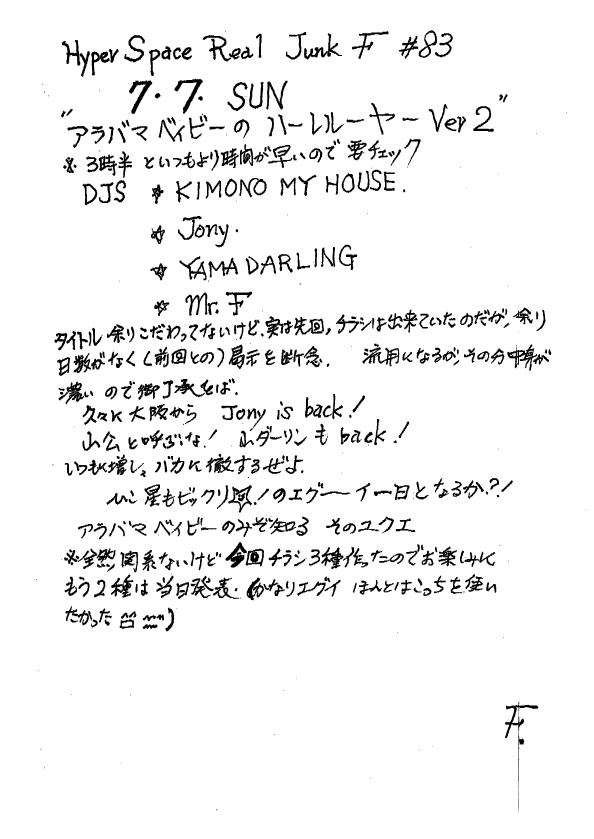 Hyper Space Real Junk F #83
7.7. SUN
"アラバマベイビーの ハーレルーヤー Ver 2"
※ 3時半 といつもより時間が早いので 要チェック
DJS ☆ KIMONO MY HOUSE.
☆ Jony.
☆ YAMADARLING
☆ Mr. F
タイトル 余りこだわってないけど、実は先回、チラシは出来ていたのだが、余り
日数がなく(前回との)掲示を断念. 流用になるが、その分中身が
濃い ので御了承をば.
久々に大阪から Jony is back!
山公と呼ぶな! 山ダーリンも back!
いつもに増し、バカに徹するぜよ.
星もビックリ!のエグーイ一日となるか?!
アラバマ ベイビーのみぞ知る そのユクエ
※全然関系ないけど 今回チラシ3種作ったのでお楽しみに
もう2種は当日発表. (かなりエグイ ほんとはこっちを使い
たかった)
F.